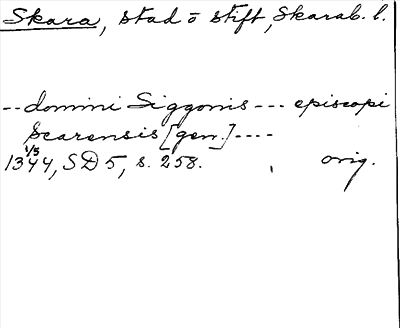 Skara, stad o stift, Skarab. l.
-- domini Siggonis --- episcopi
scarensis [gen.] ----
1344 1/5, SD 5, s. 258. orig.